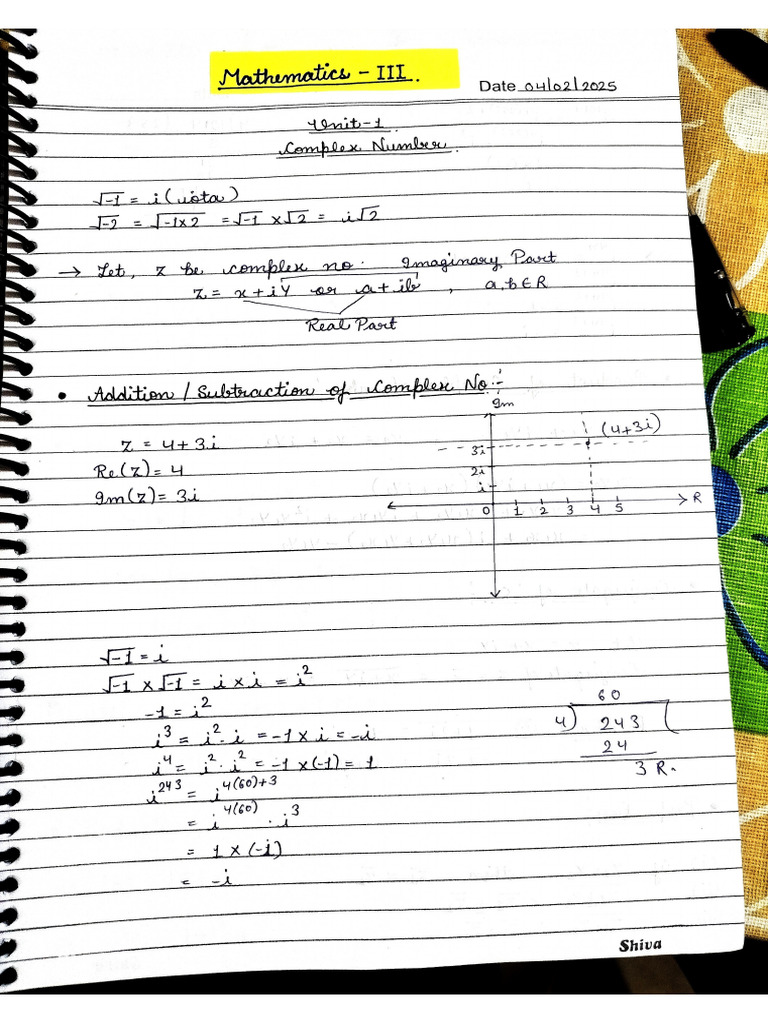 Mathematics - III.
Date 04/02/2025
Unit-1
Complex Number.
√-1 = i (iota)
√-2 = √-1x2 = √-1 x √2 = i√2
→ Let, z be complex no. Imaginary Part
z = x + iy or a + ib, a, b ∈ R
Real Part
• Addition / Subtraction of Complex No :-
Im
z = 4 + 3i
(4+3i)
Re(z) = 4
3i
2i
Im(z) = 3i
i
R
0 1 2 3 4 5
√-1 = i
√-1 x √-1 = i x i = i²
-1 = i²
60
i³ = i² · i = -1 x i = -i
4) 243 (
i⁴ = i² · i² = -1 x (-1) = 1
24
3 R.
i²⁴³ = i⁴⁽⁶⁰⁾⁺³
= i⁴⁽⁶⁰⁾ · i³
= 1 x (-i)
= -i
Shiva